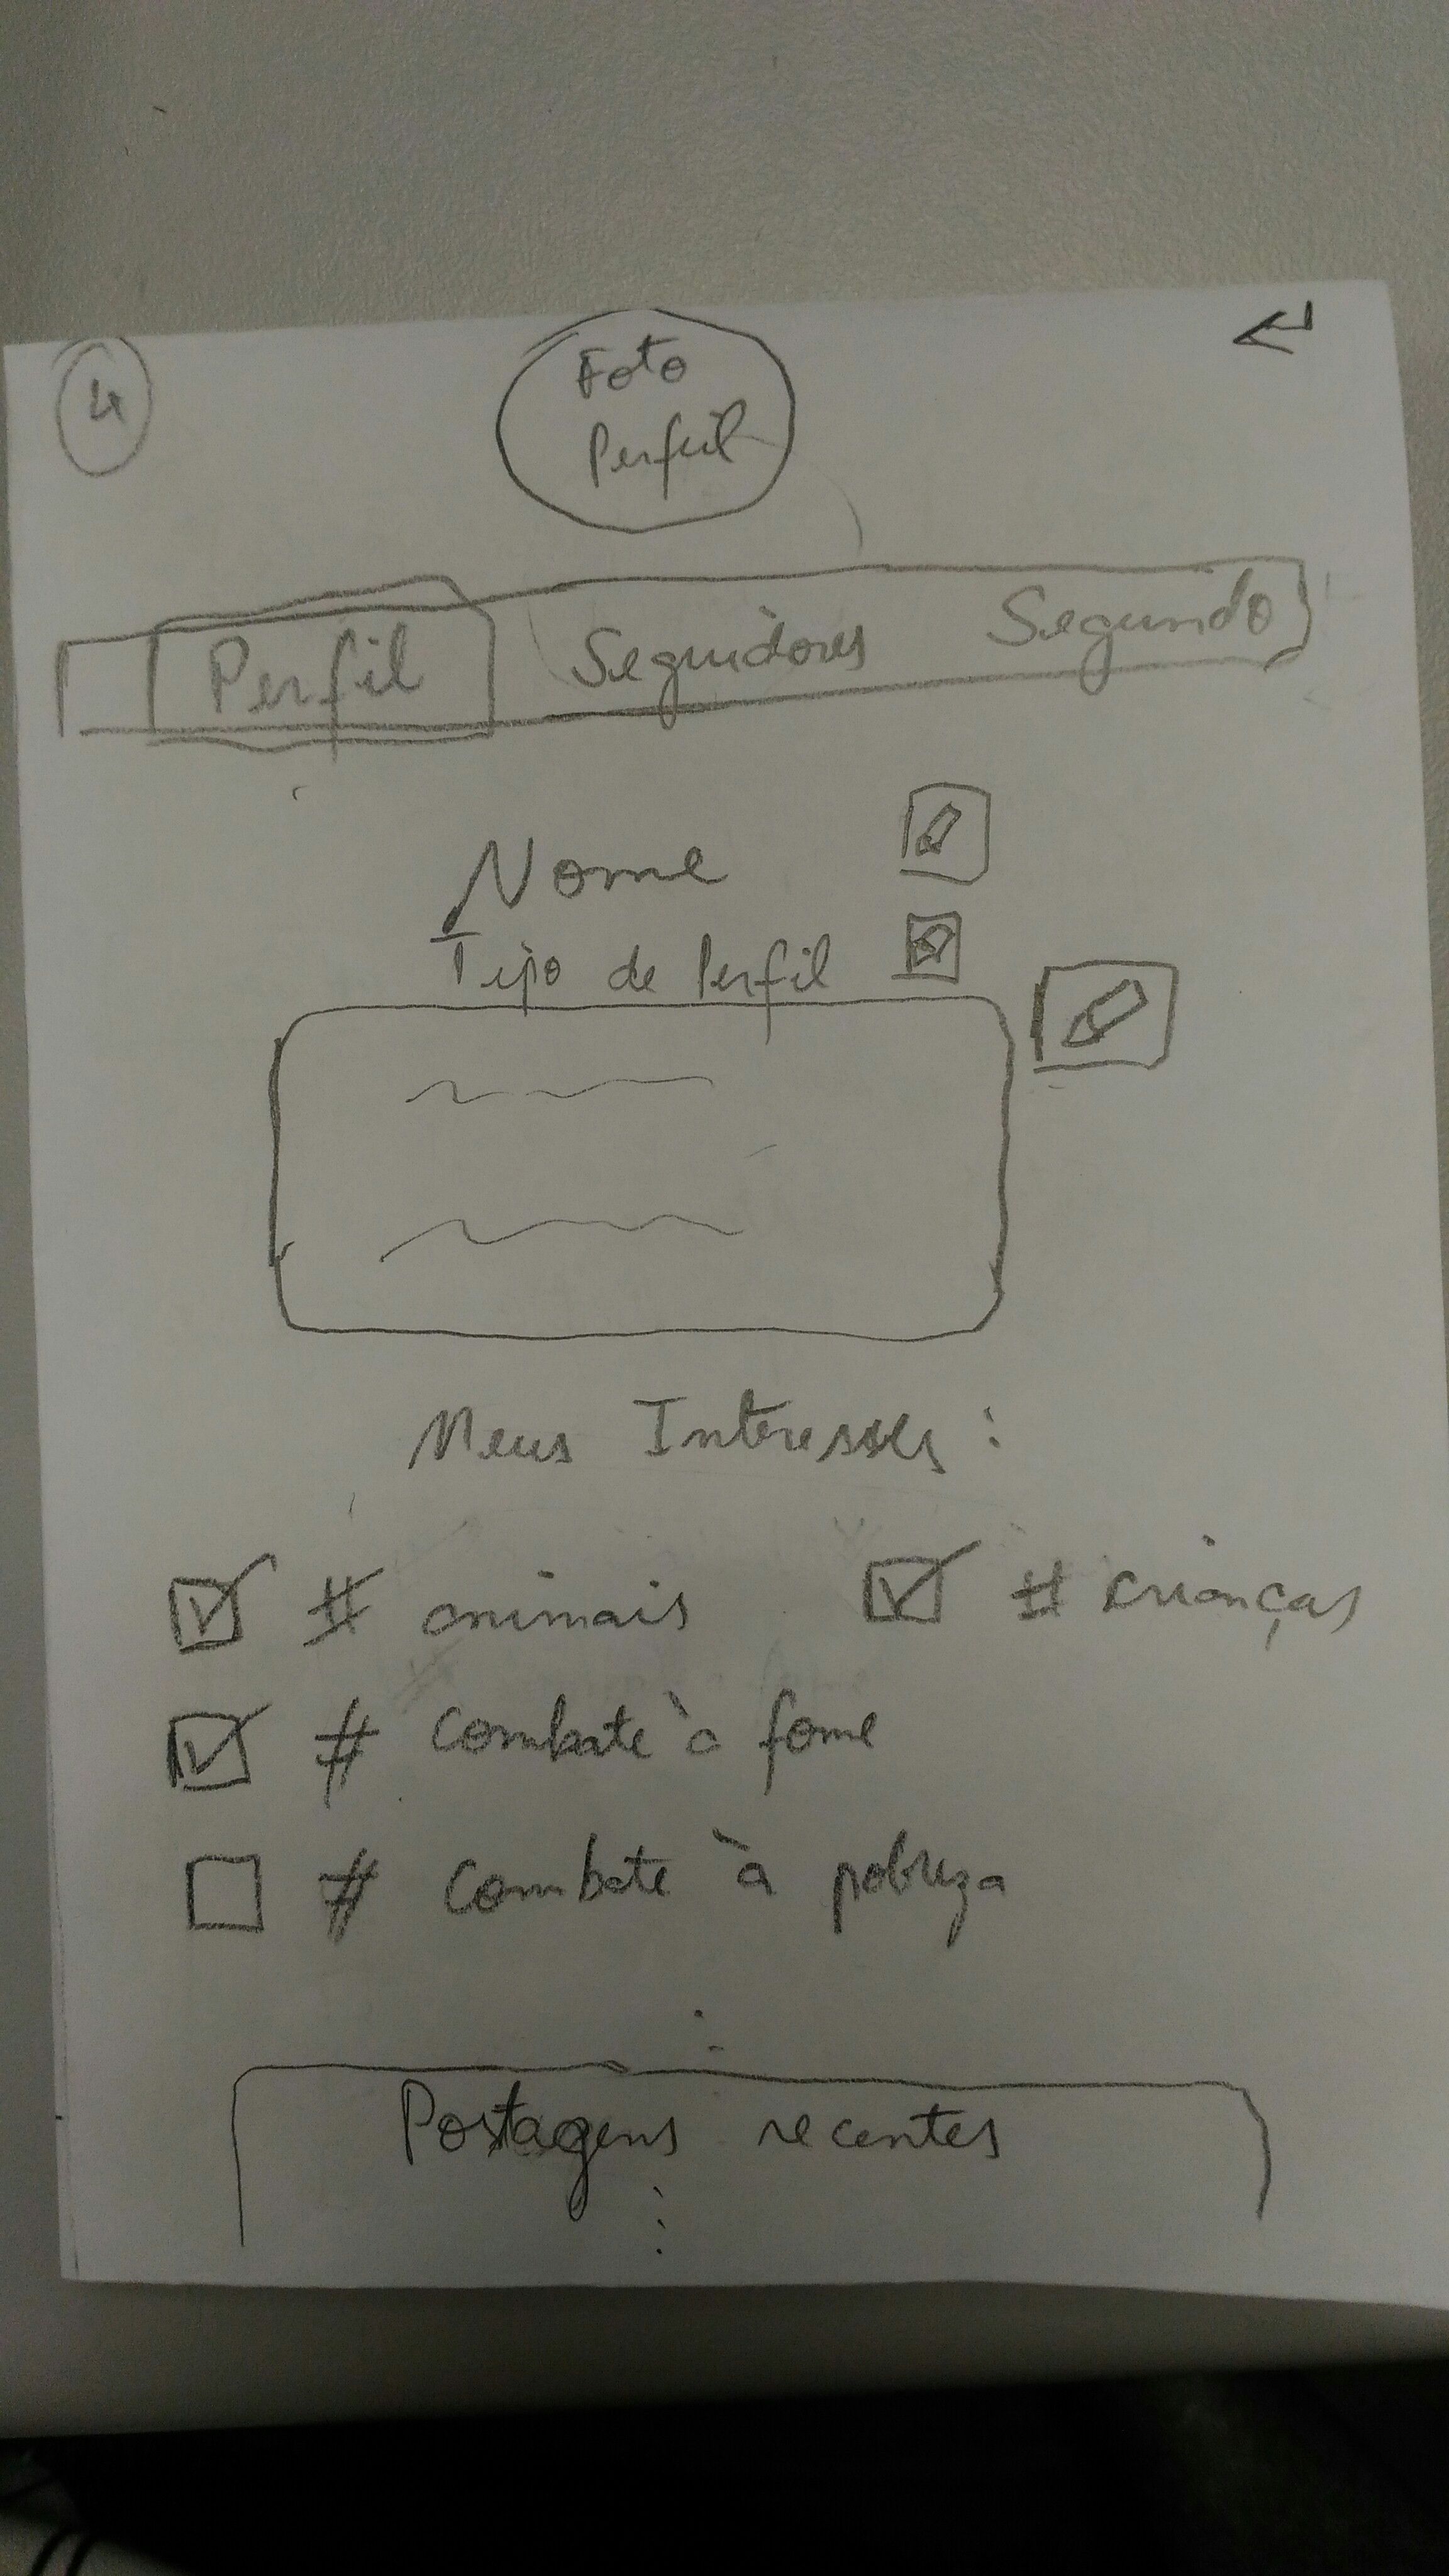 4
Foto
Perfil
Perfil Seguidores Seguindo
Nome
Tipo de Perfil
Meus Interesses:
# animais # crianças
# combate à fome
# combate à pobreza
Postagens recentes